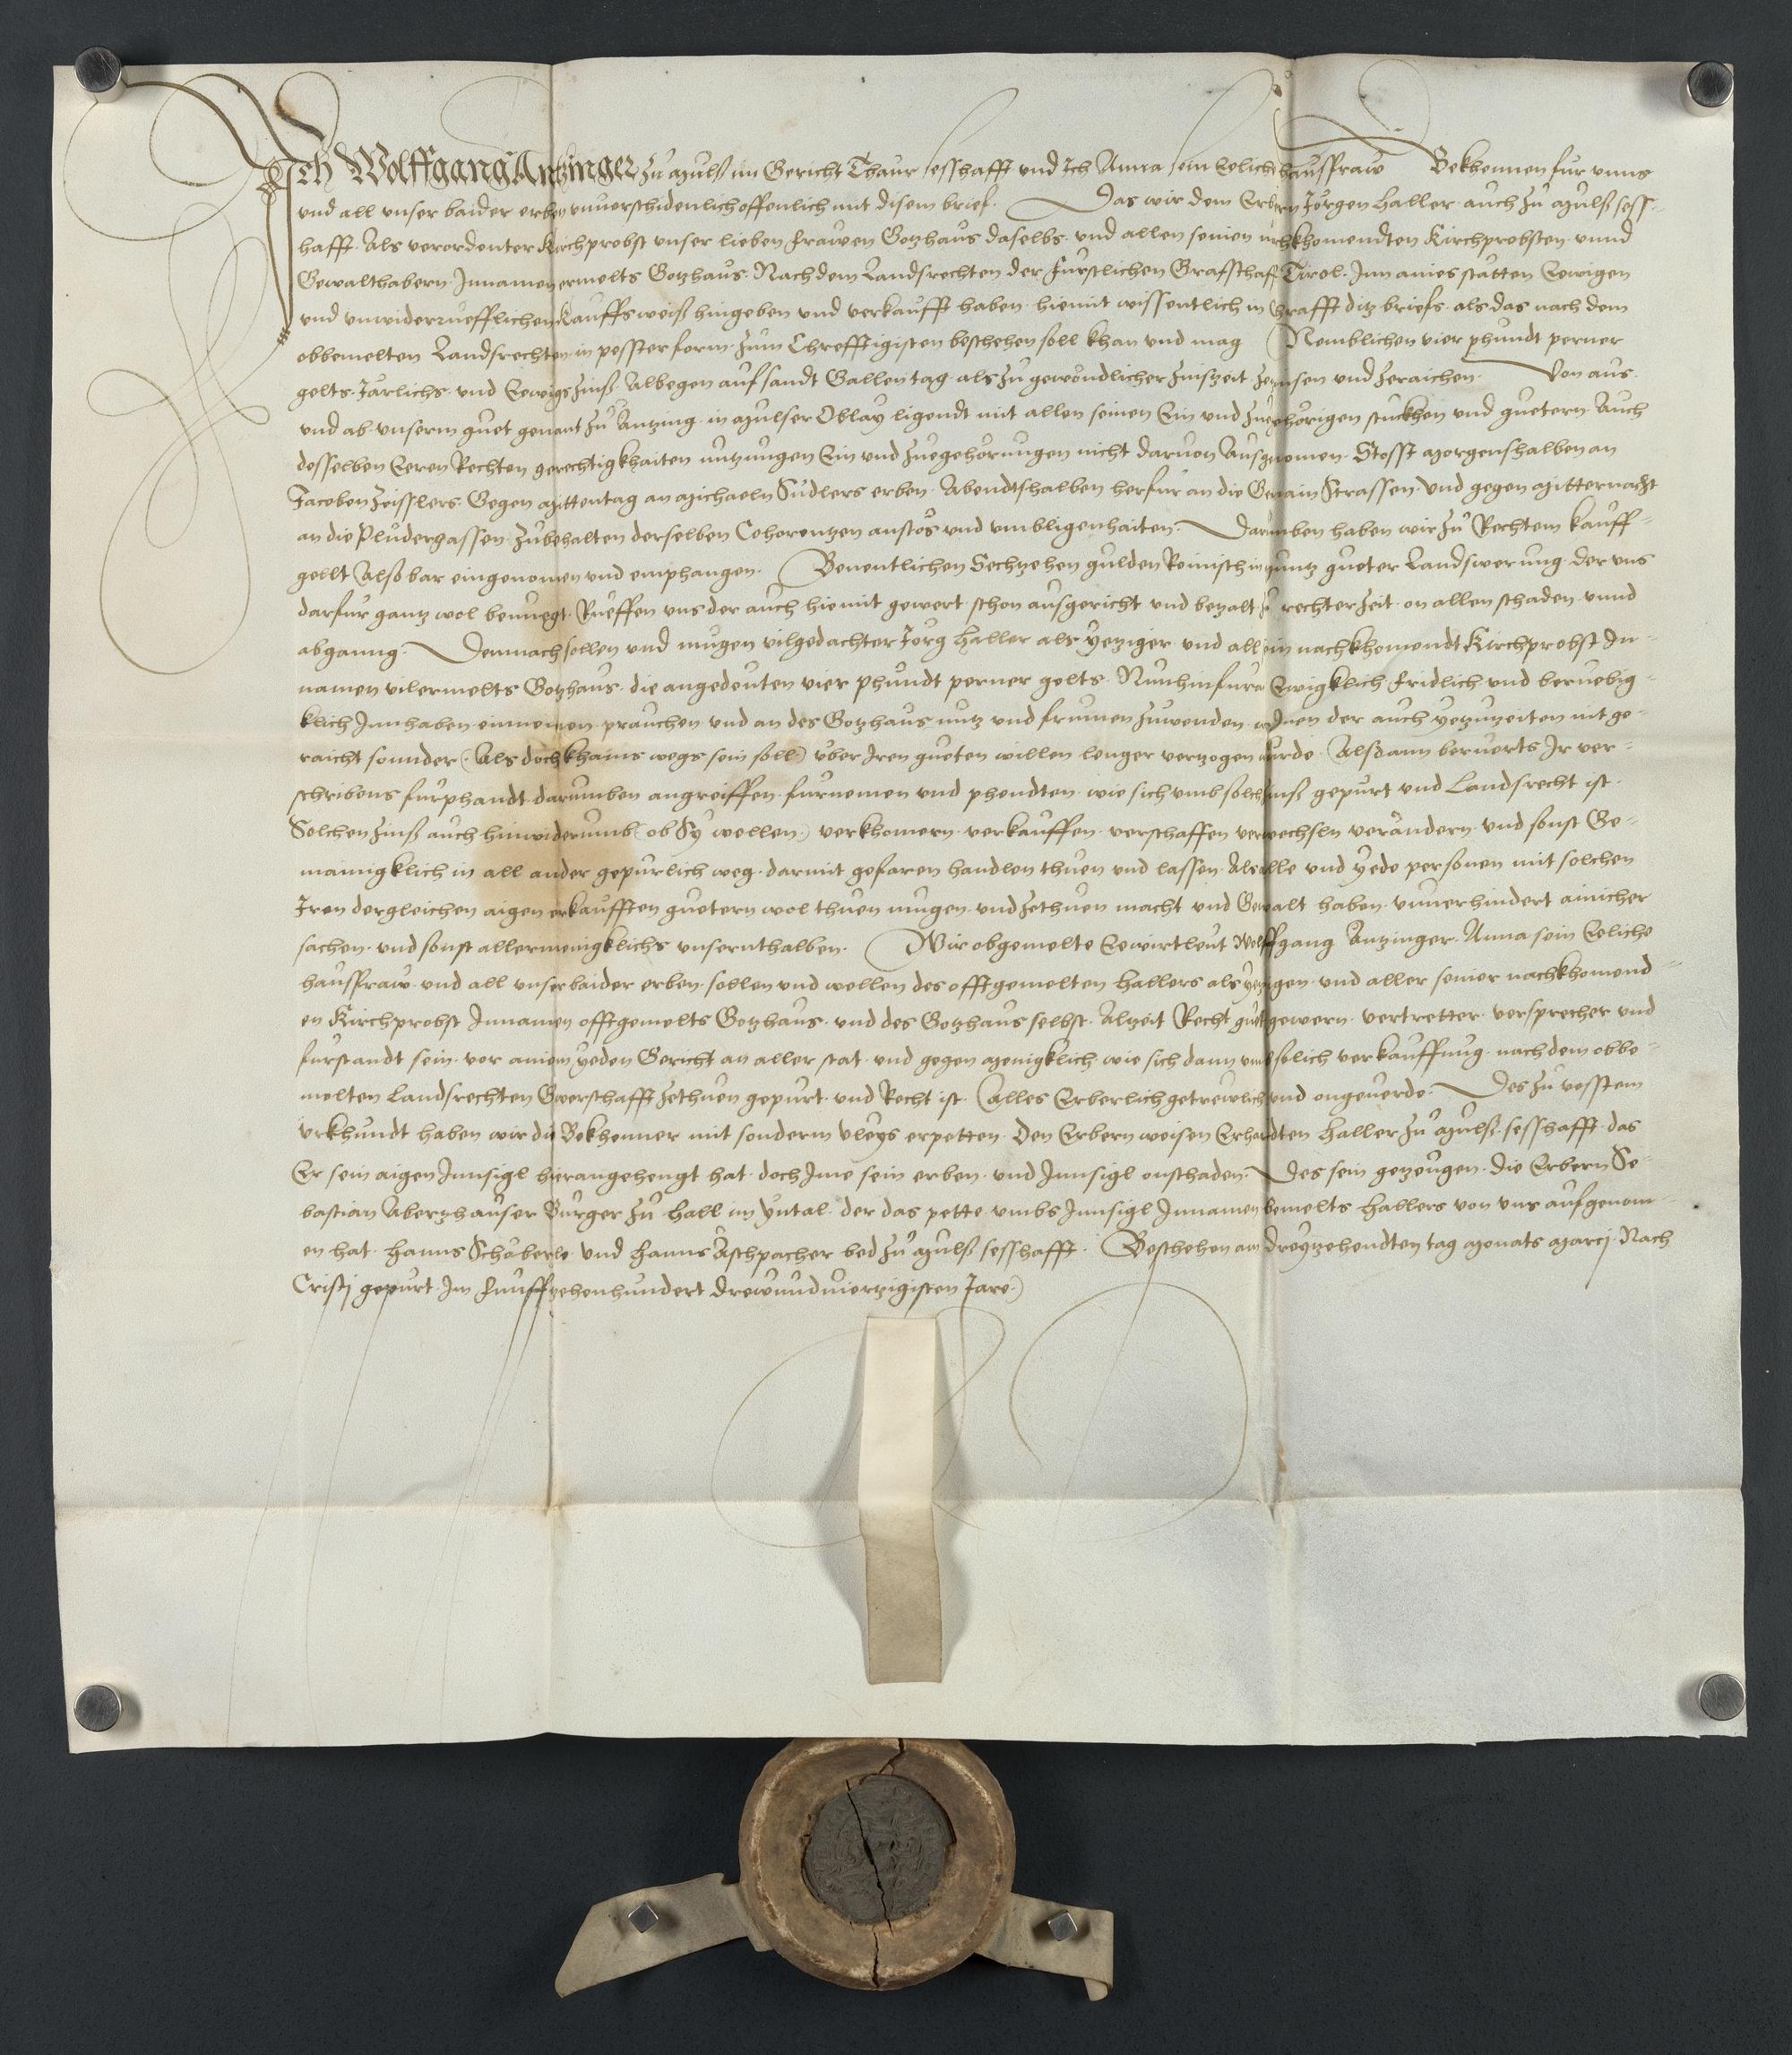 Ich Wolffgang Antzinger zu Mulß im Gericht Thaur sesshafft und Ich Anna sein Eeliche hausfraw Bekhennen fur unns
und all unser baider erben unverschidenlich offenlich mit disem brief. Das wir dem Erbern Jörgen Haller auch zu Mulß sess-
hafft. Als verordenter Kirchprobst unser lieben frawen Gotzhaus daselbs. und allen seinen nachkhomendten Kirchprobsten unnd
Gewalthabern Innamen ermelts Gotzhaus. Nach dem Landsrechten der Furstlichen Grafschafft Tirol. Inn aines statten Eewigen
und unwiderruefflichen Kauffs weiß hingeben und verkaufft haben. hiemit wissentlich in Crafft ditz briefs. als das nach dem
obbemelten Landsrechten in pesster form. zum Chrefftigisten beschehen soll khan und mag Nemblichen vier phundt perner
gelts. Järlichs und Eewigs Zinß. Albegen auf sandt Gallen tag. als zu gewöndlicher Zinszeit zezinsen und zeraichen. Von aus
und ab unserm guet genant zu Antzing. in Mulser Oblay ligendt mit allen seinen Ein und zuegehörigen stuckhen und guetern. Auch
desselben Eeren Rechten gerechtigkhaiten nutzungen Ein und zuegehörungen nicht darvon Ausgenomen. Stosst Morgenshalben an
Jacoben Zeisslers. Gegen Mittentag an Michaeln Sudlers erben. Abendtshalben herfur an die Gemain Strassen. Und gegen Mitternacht
an die Pludergassen. zubehalten derselben Coherentzen anstös und umbligenhaiten. Darumben haben wir zu Rechtem kauff-
gellt Alß bar eingenomen und emphangen. Benentlichen Sechtzehen gulden Reinisch in muntz gueter Landswerung. der uns
darfur gantz wol benuegt. Rueffen uns der auch hiemit gewert. schon ausgericht und betzalt zu rechter zeit. on allen schaden unnd
abganng. Demnach sollen und mugen vilgedachter Jörg Haller als Yetziger und all sein nachkhomendt Kirchprobst In-
namen vilermelts Gotzhaus. die angedeuten vier phundt perner gelts. Nunhinfuro Ewigklich fridlich und beruebig-
klich Innhaben einnemen prauchen und an des Gotzhaus nutz und frumen zuwenden. wo Inen der auch yetzuzeiten nit ge-
raicht sonnder (Als doch khains wegs sein soll) uber Iren gueten willen lenger vertzogen wurde. Alßdann bemerts Ir ver-
schribens furphandt darumben angreiffen furnemen und phendten. wie sich umb solch zinß gepurt und Landsrecht ist.
Solchen Zinß auch hinwiderumb (ob Sy wellen) verkhomern. verkauffen. verschaffen verwechsln verändern. und sonst Ge-
mainigklich in all ander gepurlich weg. darmit gefaren handlen thuen und lassen. Als alle und yede personen mit solchen
Iren dergleichen aigen erkaufften guetern wol thuen mugen. und zethuen macht und Gewalt haben. unverhindert ainicher
sachen. und sonst allermenigklichs unserthalben. Wir obgemelte Eewirtleut Wolffgang Antzinger. Anna sein Eeliche
hausfraw. und all unser baider erben. sollen und wellen des offtgemelten Hallers als yetzigen. und aller seiner nachkhomend-
en Kirchprobst Innamen offtgemelts Gotzhaus. und des Gotzhaus selbst. Altzeit Recht guet gewern. vertretter. versprecher und
furstandt sein. vor ainem yeden Gericht an aller stat. und gegen Menigklich. wie sich dann umb solich verkauffung. nach dem obbe-
melten Landsrechten Gwerschafft zethuen gepurt. und Recht ist. Alles Erberlich getrewlich und ongeverde. Des zu vesstem
urkhundt haben wir die Bekhenner mit sonderm vleys erpetten. Den Erbern weisen Erhardten Haller zu Mulß sesshafft. das
Er sein aigen Innsigl hierangehengt hat. doch Ime sein erben. und Innsigl onschaden. Des sein getzeugen. die Erbern Se-
bastian Abertzhauser Burger zu Hall im Yntal. der das pette umbs Innsigl Innamen bemelts Hallers von uns aufgenom-
en hat. Hanns Schäberle und Hanns Aschpacher bed zu Mulß sesshafft. Beschehen am dreytzehendten tag Monats Marcj. Nach
Cristj gepurt. Im Funffzehenhundert drewundviertzigisten Jare.